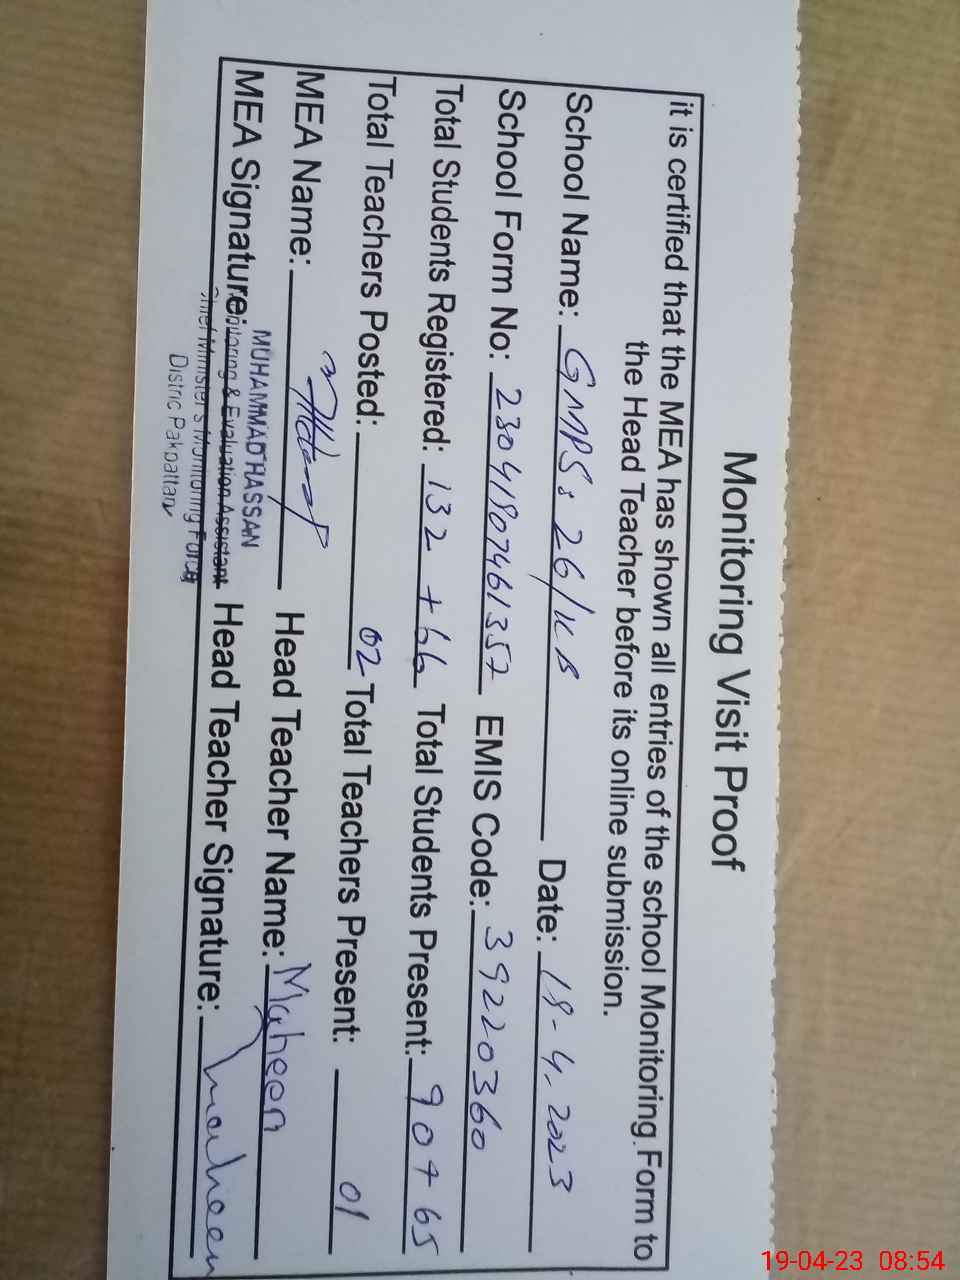 Monitoring Visit Proof
it is certified that the MEA has shown all entries of the school Monitoring Form to
the Head Teacher before its online submission.
School Name: GMPS: 26/KB Date: 18-4-2023
School Form No: 23041807461357 EMIS Code: 39220360
Total Students Registered: 132 +66 Total Students Present: 90+65
Total Teachers Posted: 02 Total Teachers Present: 01
MEA Name: Head Teacher Name: Maheen
MUHAMMAD HASSAN
MEA Signature: Head Teacher Signature: Maheen
Monitoring & Evaluation Assistant
Chief Minister's Monitoring Force
Distric Pakpattan
19-04-23 08:54